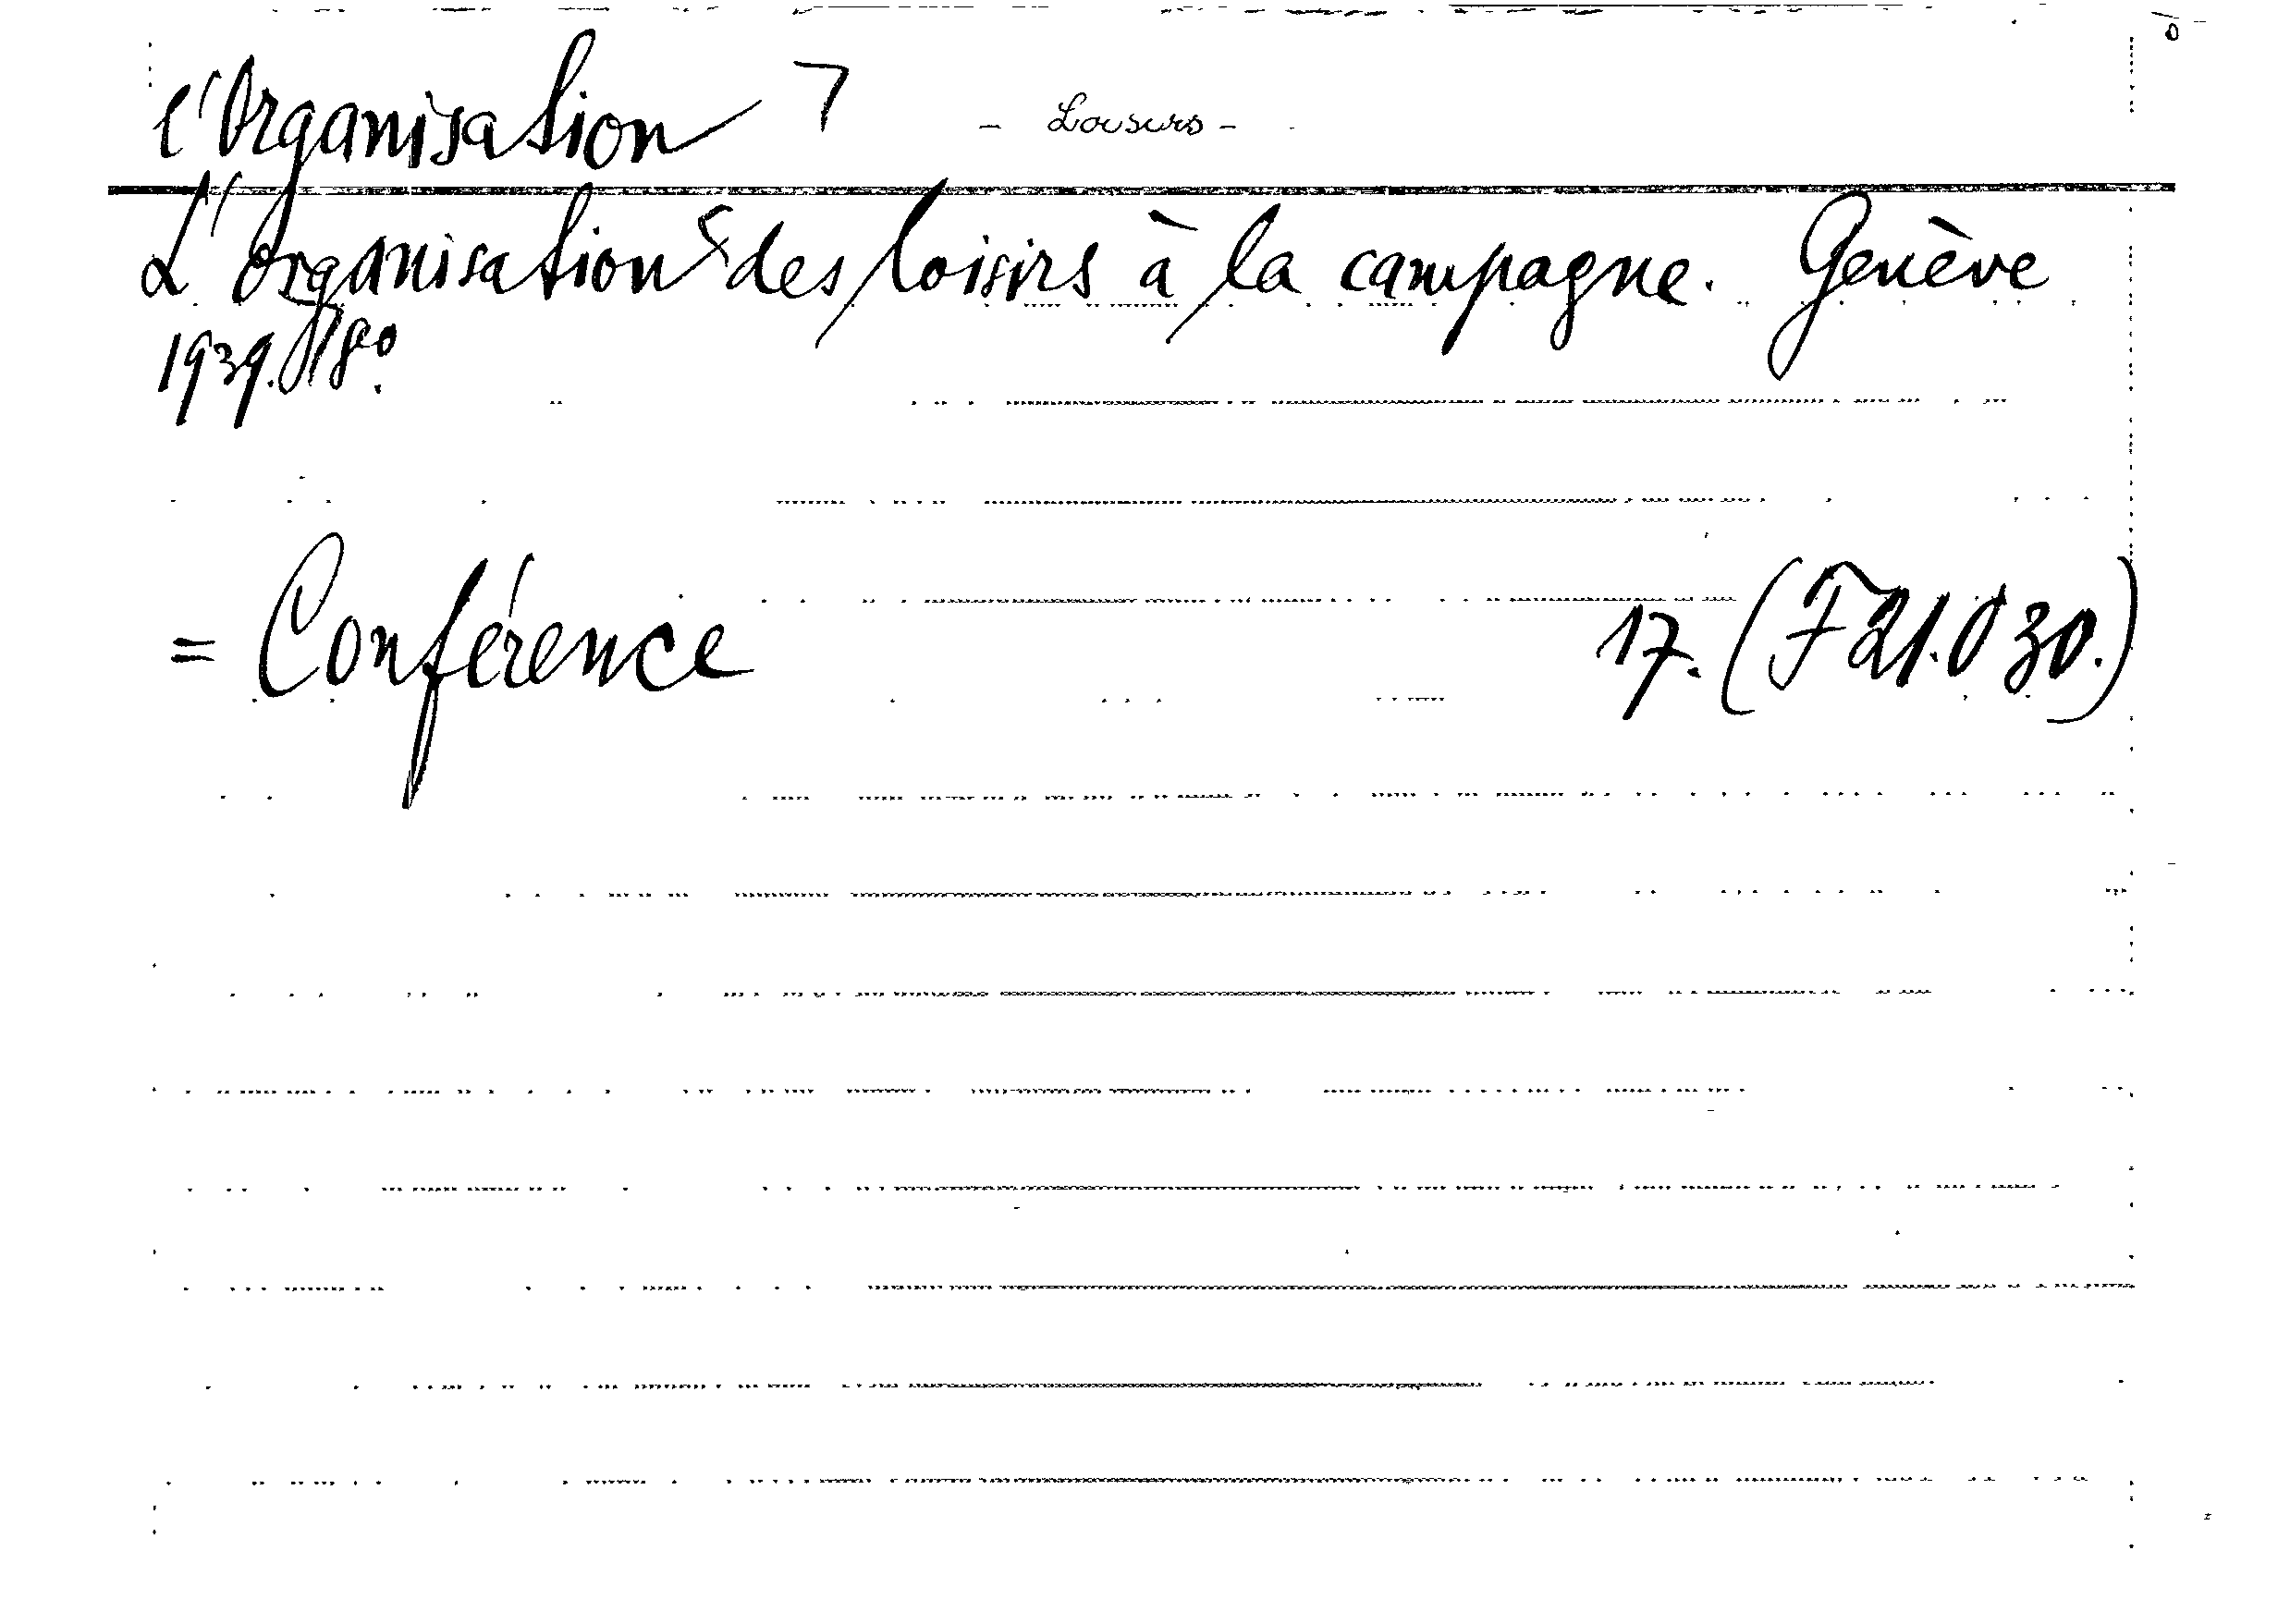 l'Organisation - Loisirs -
L'organisation des loisirs à la campagne. Genève
1939. 8º.
= Conférence 17. (F 21.030.)